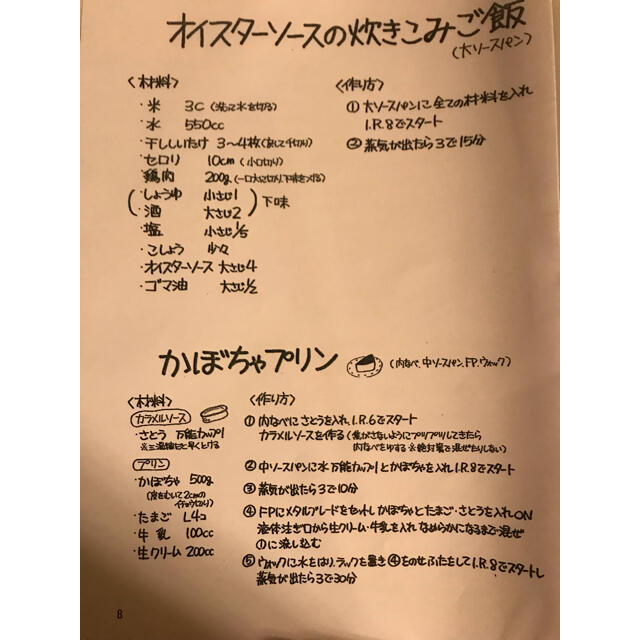 オイスターソースの炊きこみご飯
(大ソースパン)
〈材料〉
・米 3C (洗って水を切る)
・水 550cc
・干ししいたけ 3〜4枚(戻して千切り)
・セロリ 10cm (小口切り)
鶏肉 200g(一口大に切り、下味をつける)
(・しょうゆ 小さじ1
・酒 大さじ2) 下味
・塩 小さじ1/5
・こしょう 少々
・オイスターソース 大さじ4
・ゴマ油 大さじ1/2
〈作り方〉
① 大ソースパンに全ての材料を入れ
I.R.8でスタート
② 蒸気が出たら3で15分
かぼちゃプリン
(内なべ、中ソースパン、FP、ウォック)
〈材料〉
カラメルソース
・さとう 万能カップ1
※三温糖だと早くとける
プリン
・かぼちゃ 500g
(皮をむいて2cmの
イチョウ切り)
・たまご L4コ
・牛乳 100cc
・生クリーム 200cc
〈作り方〉
① 内なべにさとうを入れ、I.R.6でスタート
カラメルソースを作る (焦がさないようにプツプツしてきたら
内なべをゆする ※絶対箸で混ぜたりしない)
② 中ソースパンに水 万能カップ1とかぼちゃを入れ I.R.8でスタート
③ 蒸気が出たら3で10分
④ FPにメタルブレードをセットし かぼちゃとたまご・さとうを入れON
液体注ぎ口から生クリーム・牛乳を入れ なめらかになるまで混ぜ
①に流し込む
⑤ ウォックに水をはり、ラックを置き ④をのせふたをして I.R.8でスタートし
蒸気が出たら3で30分
8